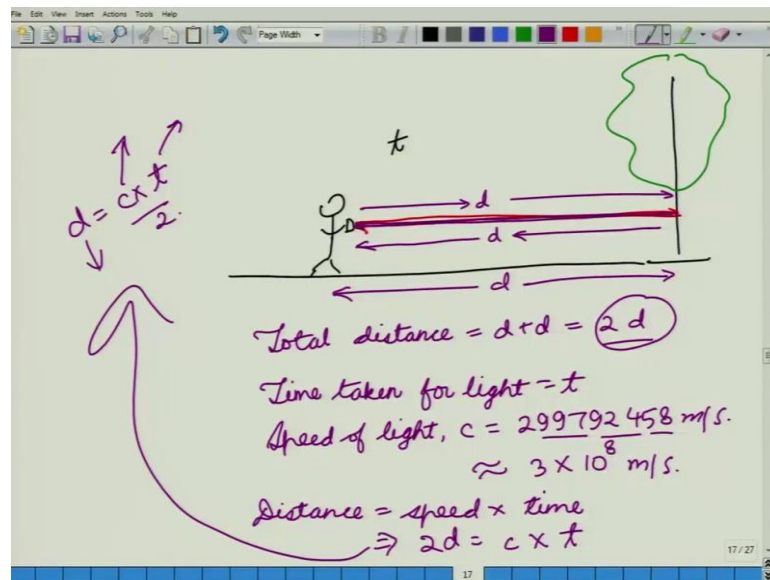 File Edit View Insert Actions Tools Help
Page Width
B I
t
d = c x t / 2.
d
d
d
Total distance = d + d = 2d
Time taken for light = t
Speed of light, c = 299792458 m/s.
≈ 3 x 10^8 m/s.
Distance = speed x time
⇒ 2d = c x t
17 / 27
17